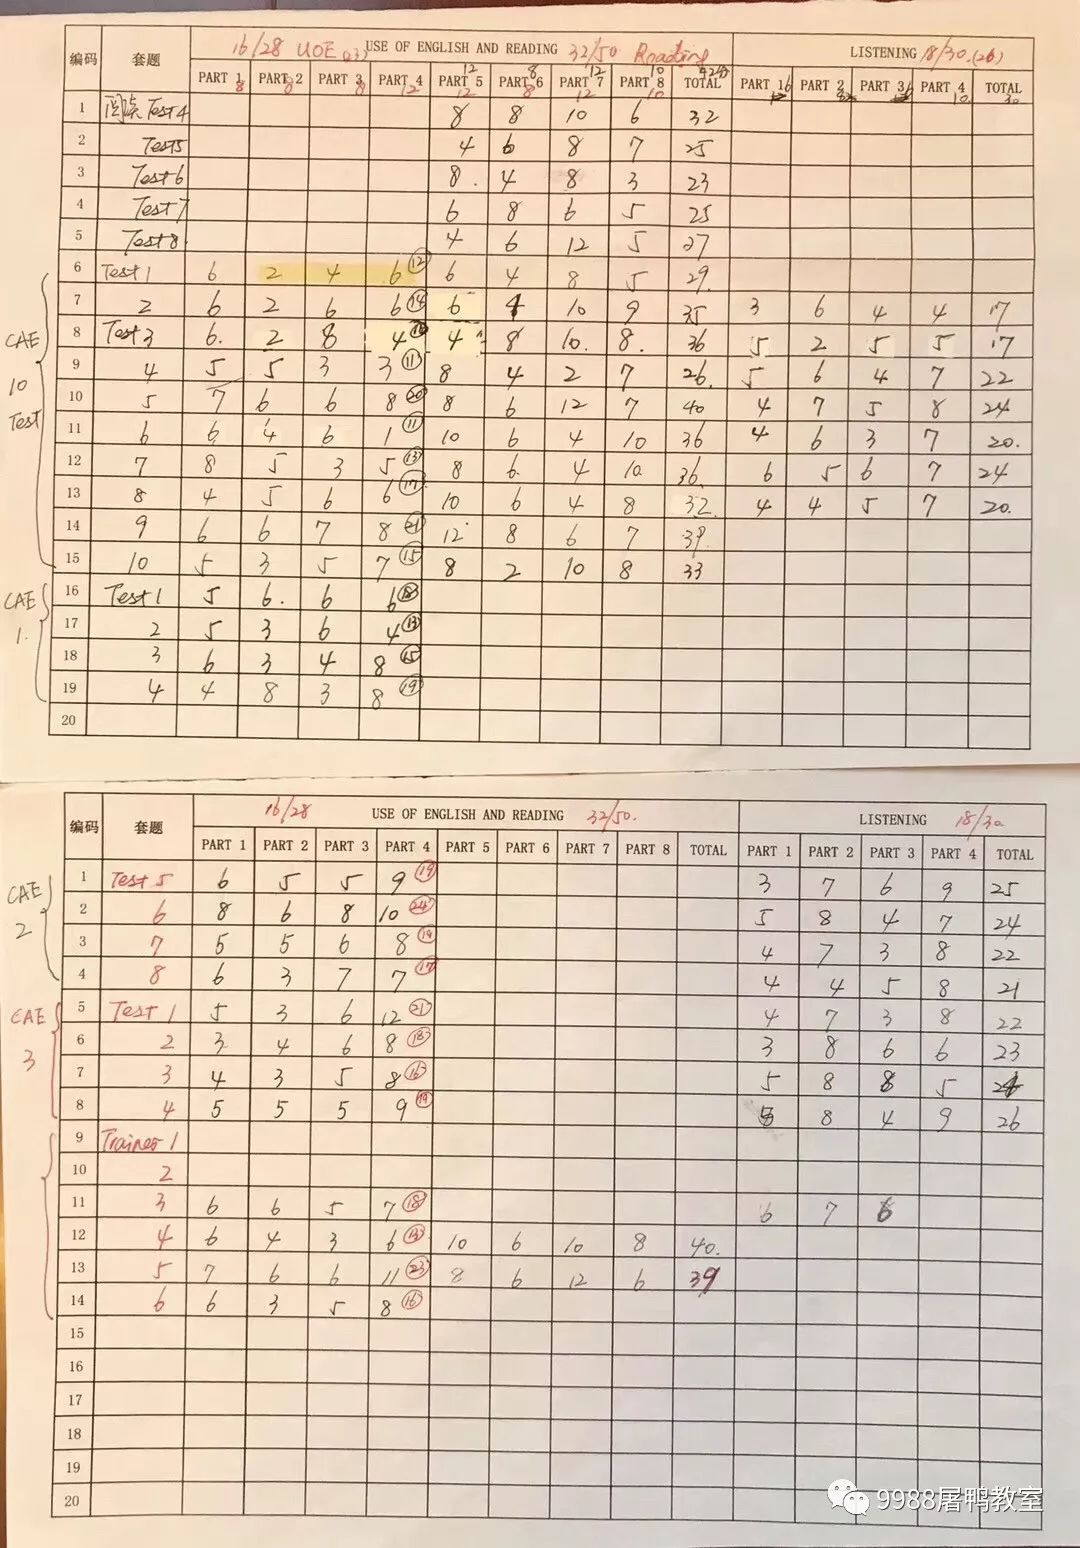 编码 套题 16/28 UOE (23) USE OF ENGLISH AND READING 32/50 Reading LISTENING 18/30.(26)
PART 1 PART 2 PART 3 PART 4 PART 5 PART 6 PART 7 PART 8 TOTAL PART 1 PART 2 PART 3 PART 4 TOTAL
8 8 8 12 12 8 12 10 10 30
1 阅读 Test4 8 8 10 6 32
2 Test5 4 6 8 7 25
3 Test6 8. 4 8 3 23
4 Test7 6 8 6 5 25
5 Test8. 4 6 12 5 27
CAE 10 Test
6 Test1 6 2 4 6 12 6 4 8 5 29
7 2 6 2 6 6 14 6 4 10 9 35 3 6 4 4 17
8 Test3 6. 2 8 4 4 8 10. 8. 36 5 2 5 5 17
9 4 5 5 3 3 11 8 4 2 7 26. 5 6 4 7 22
10 5 7 6 6 8 20 8 6 12 7 40 4 7 5 8 24
11 6 6 4 6 1 11 10 6 4 10 36 4 6 3 7 20.
12 7 8 5 3 5 13 8 6. 4 10 36. 6 5 6 7 24
13 8 4 5 6 6 17 10 6 4 8 32. 4 4 5 7 20.
14 9 6 6 7 8 21 12 8 6 7 39.
15 10 5 3 5 7 15 8 2 10 8 33
CAE 1.
16 Test1 5 6. 6 6 18
17 2 5 3 6 4 13
18 3 6 3 4 8 15
19 4 4 8 3 8 19
20
编码 套题 16/28 USE OF ENGLISH AND READING 32/50. LISTENING 18/30
PART 1 PART 2 PART 3 PART 4 PART 5 PART 6 PART 7 PART 8 TOTAL PART 1 PART 2 PART 3 PART 4 TOTAL
CAE 2
1 Test 5 6 5 5 9 19 3 7 6 9 25
2 6 8 6 8 10 24 5 8 4 7 24
3 7 5 5 6 8 19 4 7 3 8 22
4 8 6 3 7 7 17 4 4 5 8 21
CAE 3
5 Test 1 5 3 6 12 21 4 7 3 8 22
6 2 3 4 6 8 18 3 8 6 6 23
7 3 4 3 5 8 16 5 8 8 5
8 4 5 5 5 9 19 8 4 9 26
9 Trainer 1
10 2
11 3 6 6 5 7 18 6 7 6
12 4 6 4 3 6 13 10 6 10 8 40.
13 5 7 6 6 11 23 8 6 12 6 39
14 6 6 3 5 8 16
15
16
17
18
19
20
9988屠鸭教室